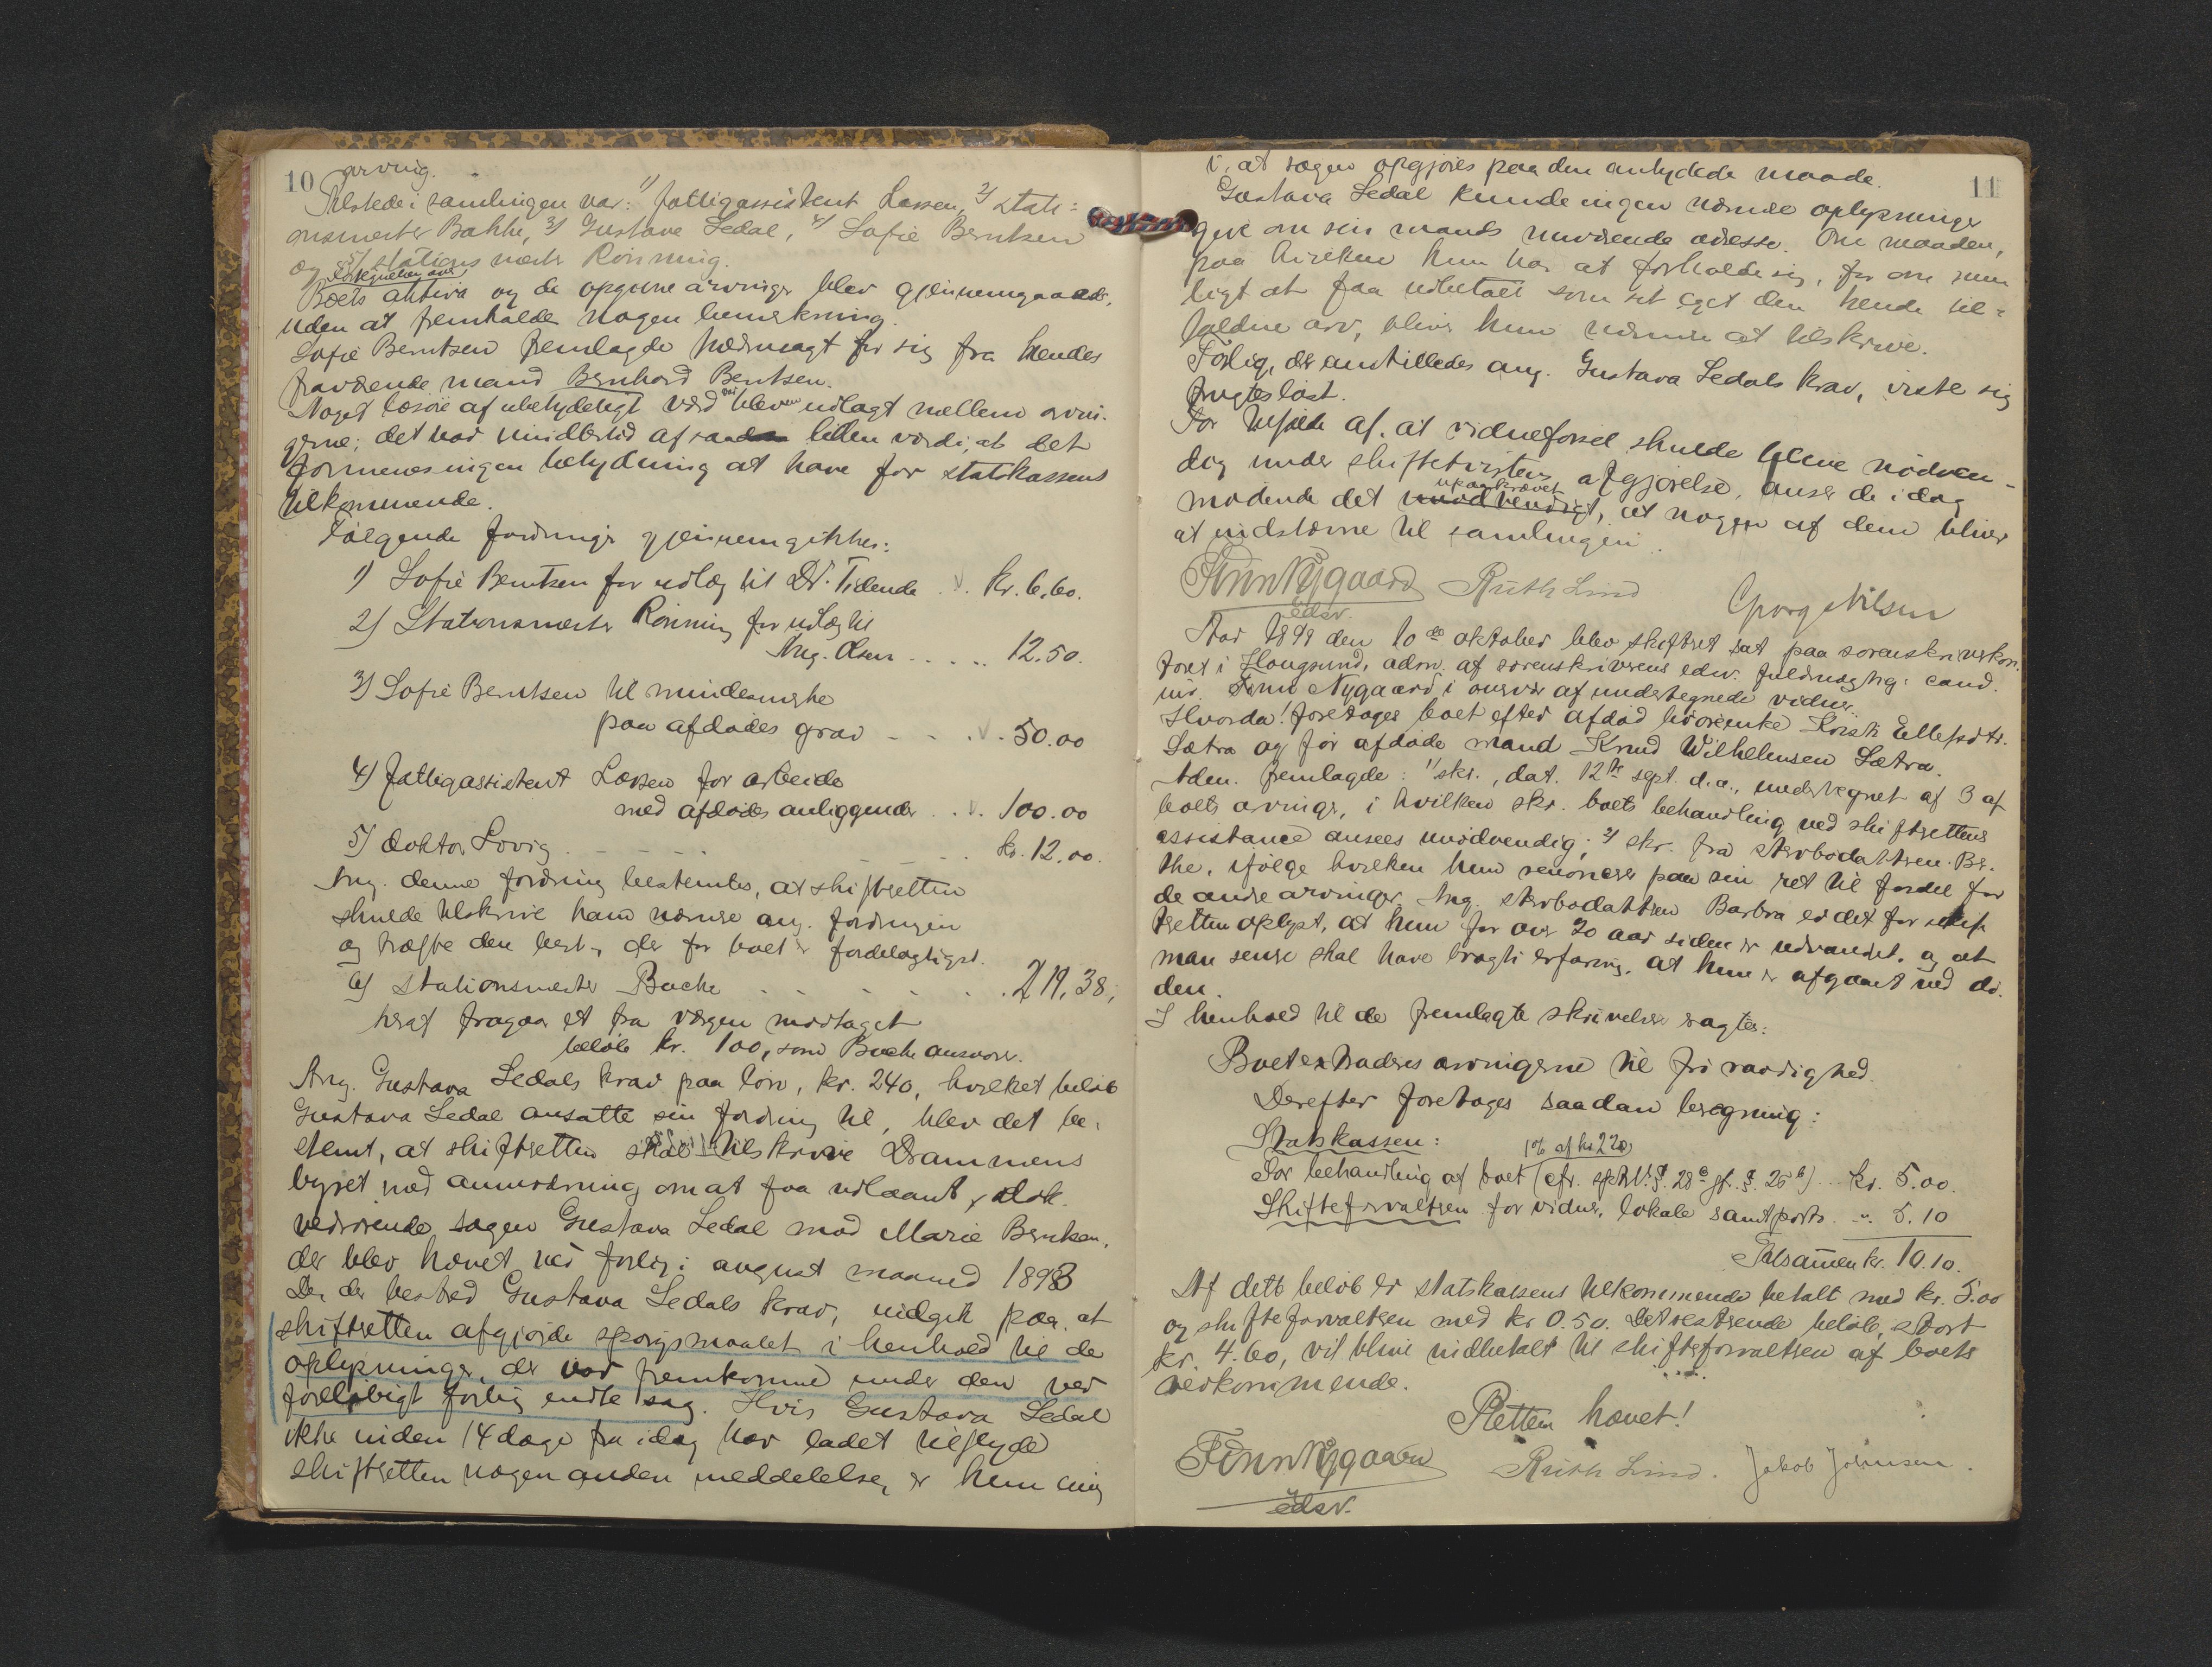 10 arving.
Tilstede i samlingen var: 1) fattigassistent Lassen, 2) stati-
onsmester Bakke, 3) Gustava Ledal, 4) Sofie Berntsen
og 5) stations mester Rønning.
Boets aktiva og de opgivne arvinger blev gjennemgaaede,
uden at fremholde nogen bemerkning.
Sofie Berntsen fremlagde fuldmagt for sig fra hendes
fraværende mand Bernhard Berntsen.
Noget løsøre af ubetydeligt værd var bleven udlagt mellem arvin-
gerne; det var imidlertid af saa liden værdi, at det
formenes ingen betydning at have for statskassens
tilkommende.
Følgende fordringer gjennemgikkes:
1) Sofie Berntsen for udlæg til Dr. Tidende . . kr. 6.60.
2) Stationsmester Rønning for udlæg til
Ang. Olsen . . . . . 12.50.
3) Sofie Berntsen til mindesmerke
paa afdødes grav - - . . 50.00
4) fattigassistent Lassen for arbeide
med afdødes anliggender . . . 100.00
5) doktor Lovig - - - - - - - kr. 12.00.
Ang. denne fordring bestemtes, at skifteretten
skulde tilskrive ham nærmere ang. fordringen
og træffe den best., der for boet er fordelagtigst.
6) Stationsmester Bache - - - - - . 219,38;
heraf fragaar et fra værgen modtaget
beløb kr. 100, som Bache ansvarer.
Ang. Gustava Ledals krav paa løn, kr. 240, hvilket beløb
Gustava Ledal ansatte sin fordring til, blev det be-
stemt, at skifteretten skal tilskrive Drammens
byret med anmodning om at faa udlaant dok.
vedrørende sagen Gustava Ledal mod Marie Berntsen,
der blev hævet ved forlig i august maaned 1898
De, der bestred Gustava Ledals krav, indgik paa, at
skifteretten afgjorde spørgsmaalet i henhold til de
oplysninger, der var fremkomne under den ved
foreløbigt forlig endte sag. Hvis Gustava Ledal
ikke inden 14 dage fra idag har ladet tilflyde
skifteretten nogen anden meddelelse, er hun enig
11
i, at sagen opgjøres paa den antydede maade.
Gustava Ledal kunde ingen nærmere oplysninger
give om sin mands nuværende adresse. Om maaden,
paa hvilken hun har at forholde sig, for om mu-
ligt at faa udbetalt som sit eget den hende til-
faldne arv, bliver hun nærmere at tilskrive.
Forlig, der anstilledes ang. Gustava Ledals krav, viste sig
frugtesløst.
For tilfælde af, at vidneførsel skulde blive nødven-
dig under skiftetvistens afgjørelse, anser de idag
mødende det upaakrævet, at nogen af dem bliver
at indstævne til samlingen.
Finn Nygaard Ruth Lind Georg Nilsen
edsv.
Aar 1899 den 10de oktober blev skifteret sat paa sorenskriverkon-
toret i Hougsund, adm. af sorenskriverens edsv. fuldmægtig: cand.
jur. Finn Nygaard, i overvær af undertegnede vidner.
Hvorda! foretages boet efter afdød enke Kristi Ellefsdtr.
Sætra og før afdøde mand Knud Wilhelmsen Sætra.
Adm. fremlagde: 1) skr., dat. 12te sept. d.a., undertegnet af 3 af
boets arvinger, i hvilken skr. boets behandling ved skifterettens
assistance ansees unødvendig; 2) skr. fra sterbodatteren Be-
the, ifølge hvilken hun renoncerer paa sin ret til fordel for
de andre arvinger. Ang. sterbodatteren Barbra er det for skif-
teretten oplyst, at hun for over 20 aar siden er udvandret, og at
man senere skal have bragt i erfaring, at hun er afgaaet ved dø-
den.
I henhold til de fremlagte skrivelser sagtes:
Boet extraderes arvingerne til fri raadighed.
Derefter foretages saadan beregning:
Statskassen: 1% af kr 220
For behandling af boet (cfr. sptl. § 28 c jf. § 25 b) . . kr. 5.00.
Skifteforvalteren for vidner, lokale samt porto - ". 5.10
Tilsammen kr. 10.10.
Af dette beløb er statskassens tilkommende betalt med kr. 5.00
og skifteforvalteren med kr 0.50. Det resterende beløb, stort
kr. 4.60, vil blive indbetalt til skifteforvalteren af boets
vedkommende.
Retten hævet!
Finn Nygaard Ruth Lind. Jakob Johnsen.
edsv.